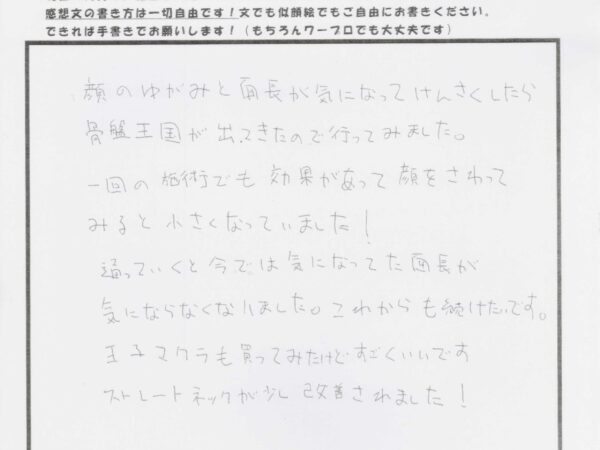 感想文の書き方は一切自由です！文でも似顔絵でもご自由にお書きください。
できれば手書きでお願いします！（もちろんワープロでも大丈夫です）
顔のゆがみと面長が気になってけんさくしたら
骨盤王国が出てきたので行ってみました。
一回の施術でも効果があって顔をさわって
みると小さくなっていました！
通っていくと今では気になってた面長が
気にならなくなりました。これからも続けたいです。
王子マクラも買ってみたけどすごくいいです
ストレートネックが少し改善されました！